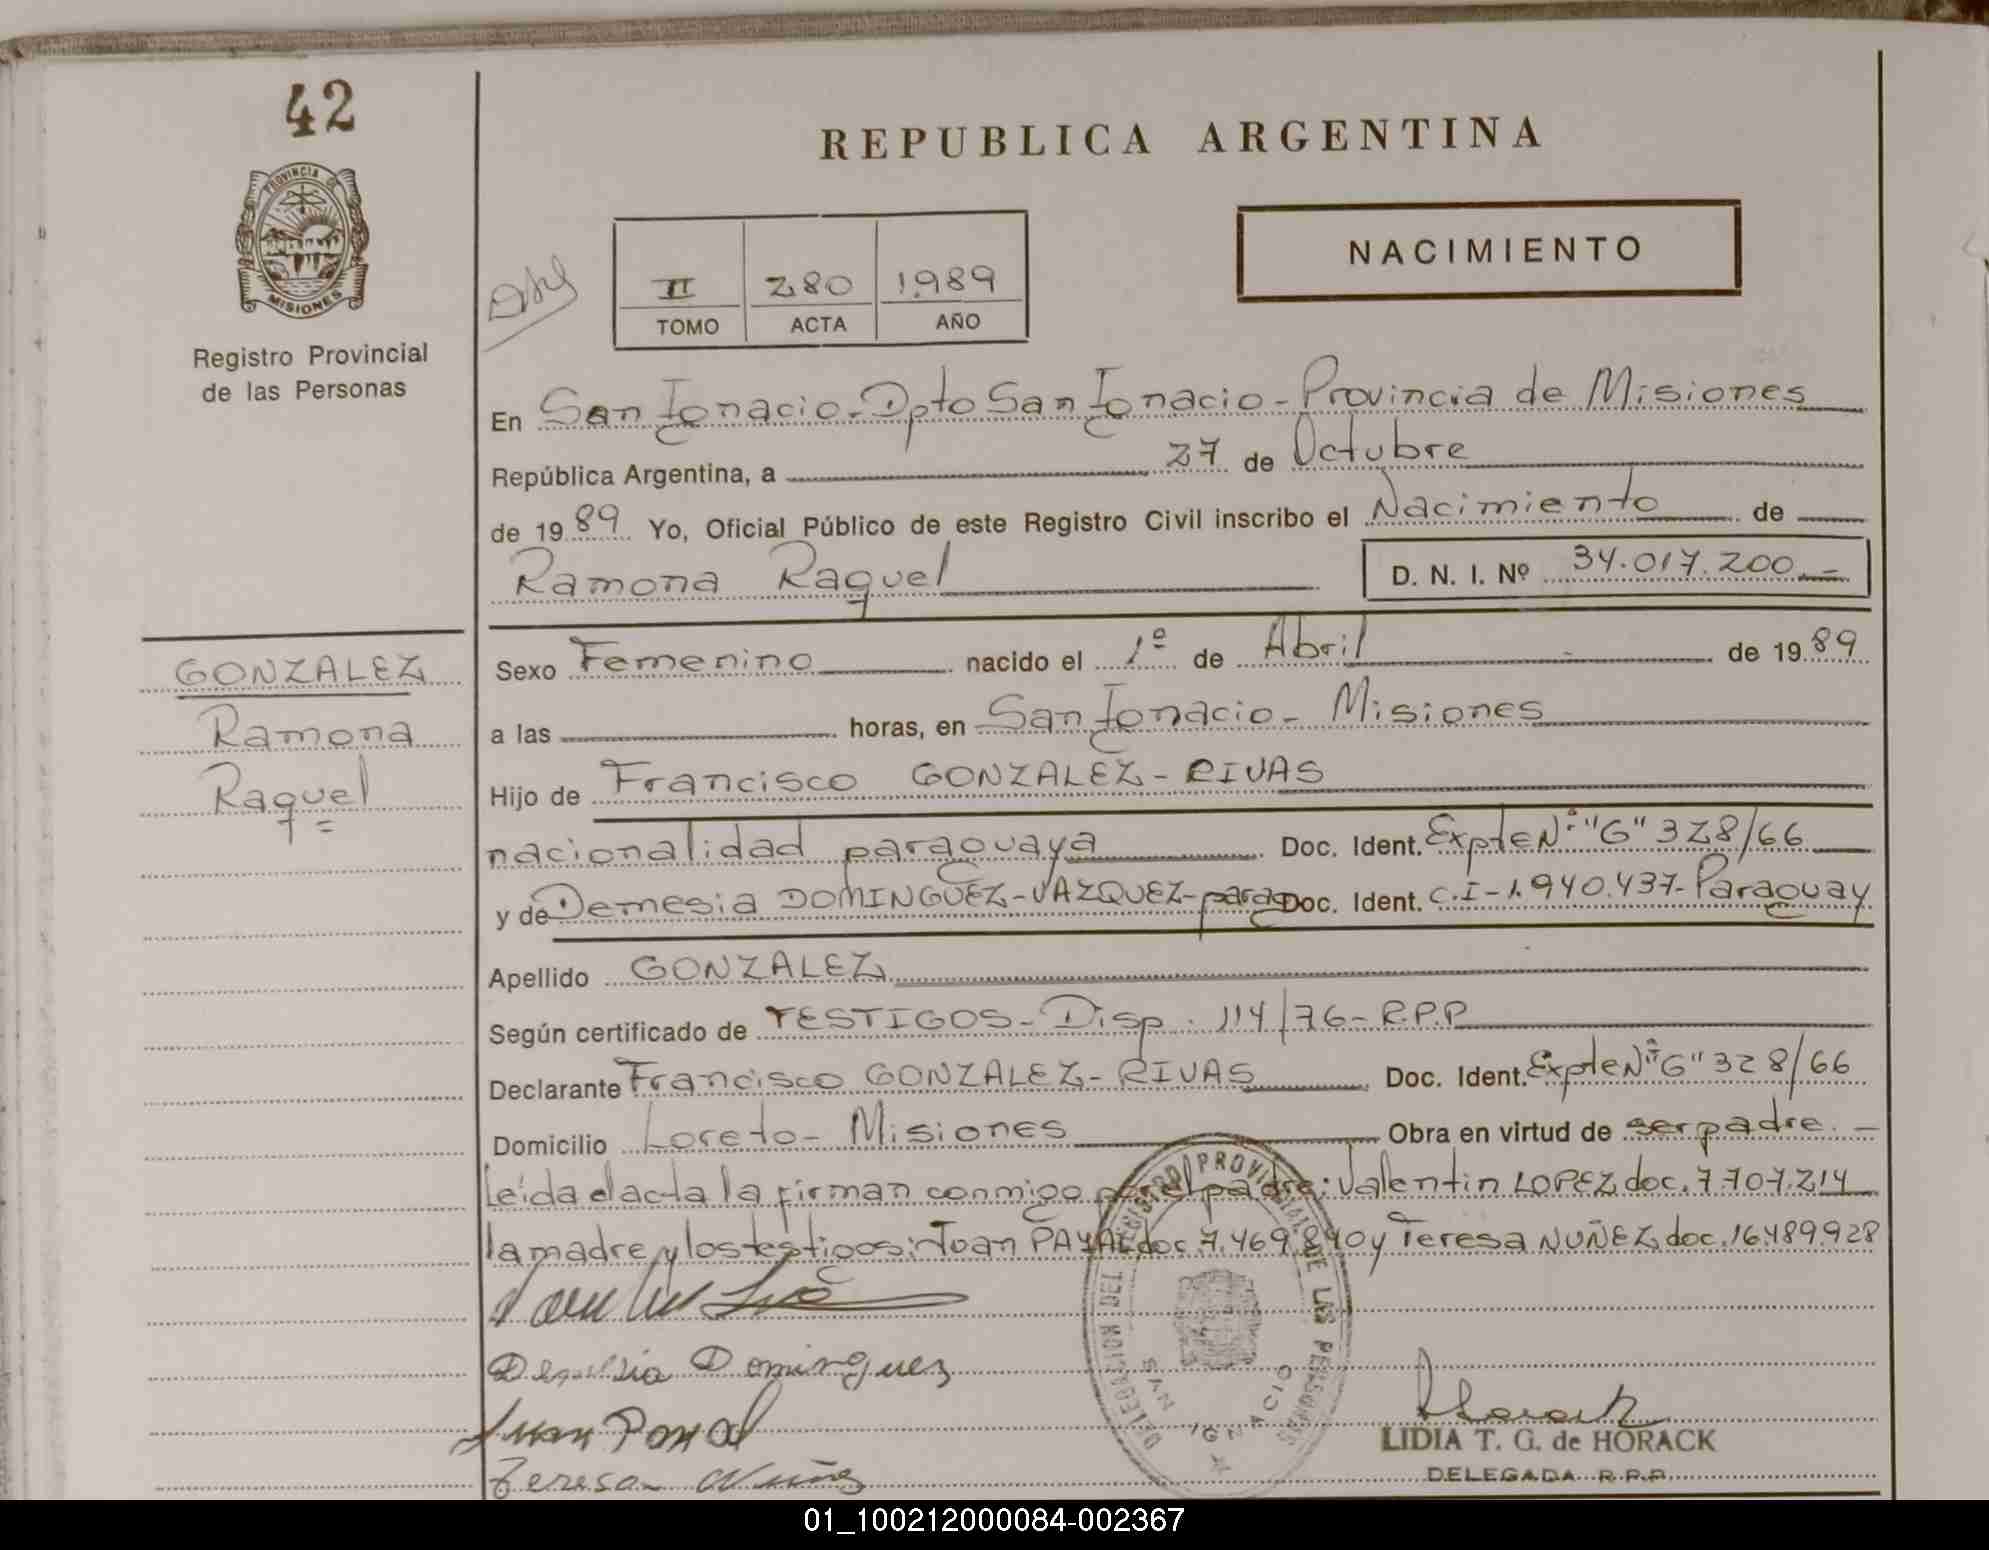 42
PROVINCIA DE
MISIONES
Registro Provincial
de las Personas
REPUBLICA ARGENTINA
NACIMIENTO
II 280 1.989
TOMO ACTA AÑO
En San Ignacio-Dpto San Ignacio-Provincia de Misiones
República Argentina, a 27 de Octubre
de 19 89 Yo, Oficial Público de este Registro Civil inscribo el Nacimiento de
Ramona Raquel D. N. I. Nº 34.017.200.-
GONZALEZ
Ramona
Raquel
Sexo Femenino nacido el 1º de Abril de 19 89
a las horas, en San Ignacio- Misiones
Hijo de Francisco GONZALEZ-RIVAS
nacionalidad paraguaya Doc. Ident. Expte Nº "G" 328/66
y de Demesia DOMINGUEZ-VAZQUEZ-parag Doc. Ident. C.I-1.940.437-Paraguay
Apellido GONZALEZ
Según certificado de TESTIGOS-Disp. 114/76-R.P.P
Declarante Francisco GONZALEZ-RIVAS Doc. Ident. Expte Nº "G" 328/66
Domicilio Loreto- Misiones Obra en virtud de ser padre.-
Leída el acta la firman conmigo por el padre: Valentin LOPEZ doc. 7.707.214
la madre y los testigos: Juan PAYAL doc. 7.469.890 y Teresa NUÑEZ doc. 16.489.928
DELEGACION DEL REGISTRO PROVINCIAL DE LAS PERSONAS
SAN IGNACIO
Demesia Dominguez
Juan Payal
Teresa Nuñez
Horack
LIDIA T. G. de HORACK
DELEGADA R.P.P.
01_100212000084-002367